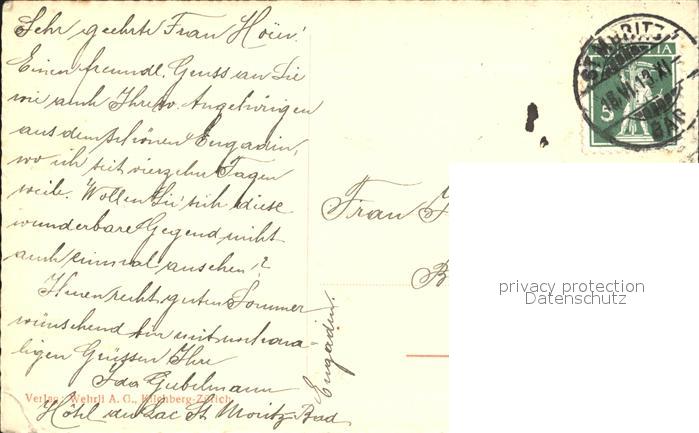 Sehr geehrte Frau
Einen freundl. Gruss an Sie
wie auch Ihren Angehörigen
aus dem schönen Engadin,
wo ich seit vierzehn Tagen
weile. Wollen Sie sich diese
wunderbare Gegend nicht
auch einmal ansehen?
Ihnen recht guten Sommer
wünschend bin mit
ligen Grüssen Ihre
Ida
Hôtel du Lac St. Moritz-Bad
Engadin.
Verlag: Wehrli A. G., Kilchberg-Zürich
ST. MORITZ
VII.13.XI
BAD
5
Frau
privacy protection
Datenschutz